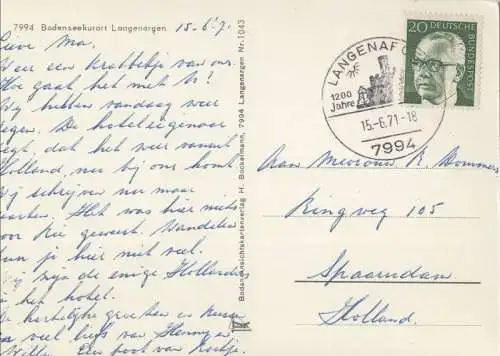 7994 Bodenseekurort Langenargen
15-6-7
Lieve Ma.
Weer een krabbeltje van ons.
Hoe gaat het met U?
Wij hebben vandaag weer
regen. De hoteleigenaar
zegt, dat het weer vanuit
Holland, naar bij ons komt
Wij schrijven nu maar
kaarten. Het was hier niets
voor Rie geweest. Wandelen
kun je hier niet veel.
Wij zijn de enige Hollanders
in het hotel.
De hartelijke groeten en kussen
en veel liefs van Henny en
Willy. Een poot van
Bodan-Ansichtskartenverlag H. Bockelmann, 7994 Langenargen Nr. 1043
LANGENAR
1200
Jahre
15.-6.71-18
7994
20 DEUTSCHE BUNDESPOST
Aan Mevrouw R. Dommers
Ringweg 105
Spaarndam
Holland.